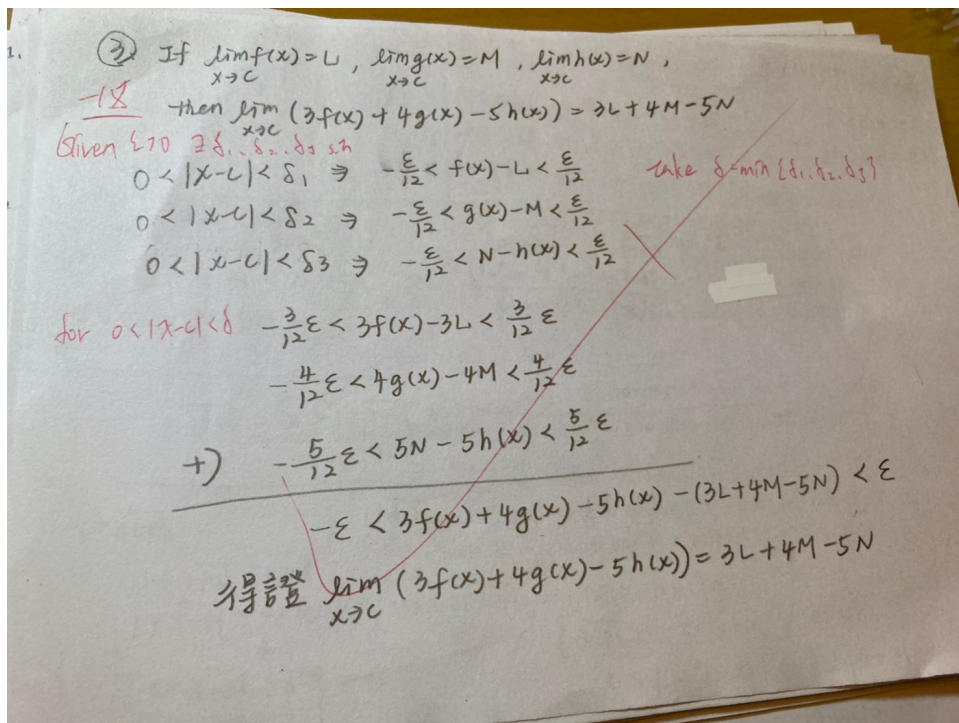 1.
③ If lim f(x) = L , lim g(x) = M , lim h(x) = N ,
x→c x→c x→c
then lim (3f(x) + 4g(x) - 5h(x)) = 3L + 4M - 5N
x→c
Given ε>0 ∃ δ₁, δ₂, δ₃ s.t.
0 < |x-c| < δ₁ ⇒ -ε/12 < f(x) - L < ε/12 take δ=min{δ₁,δ₂,δ₃}
0 < |x-c| < δ₂ ⇒ -ε/12 < g(x) - M < ε/12
0 < |x-c| < δ₃ ⇒ -ε/12 < N - h(x) < ε/12
for 0<|x-c|<δ -3/12 ε < 3f(x) - 3L < 3/12 ε
-4/12 ε < 4g(x) - 4M < 4/12 ε
+) -5/12 ε < 5N - 5h(x) < 5/12 ε
-ε < 3f(x) + 4g(x) - 5h(x) - (3L+4M-5N) < ε
得證 lim (3f(x) + 4g(x) - 5h(x)) = 3L + 4M - 5N
x→c